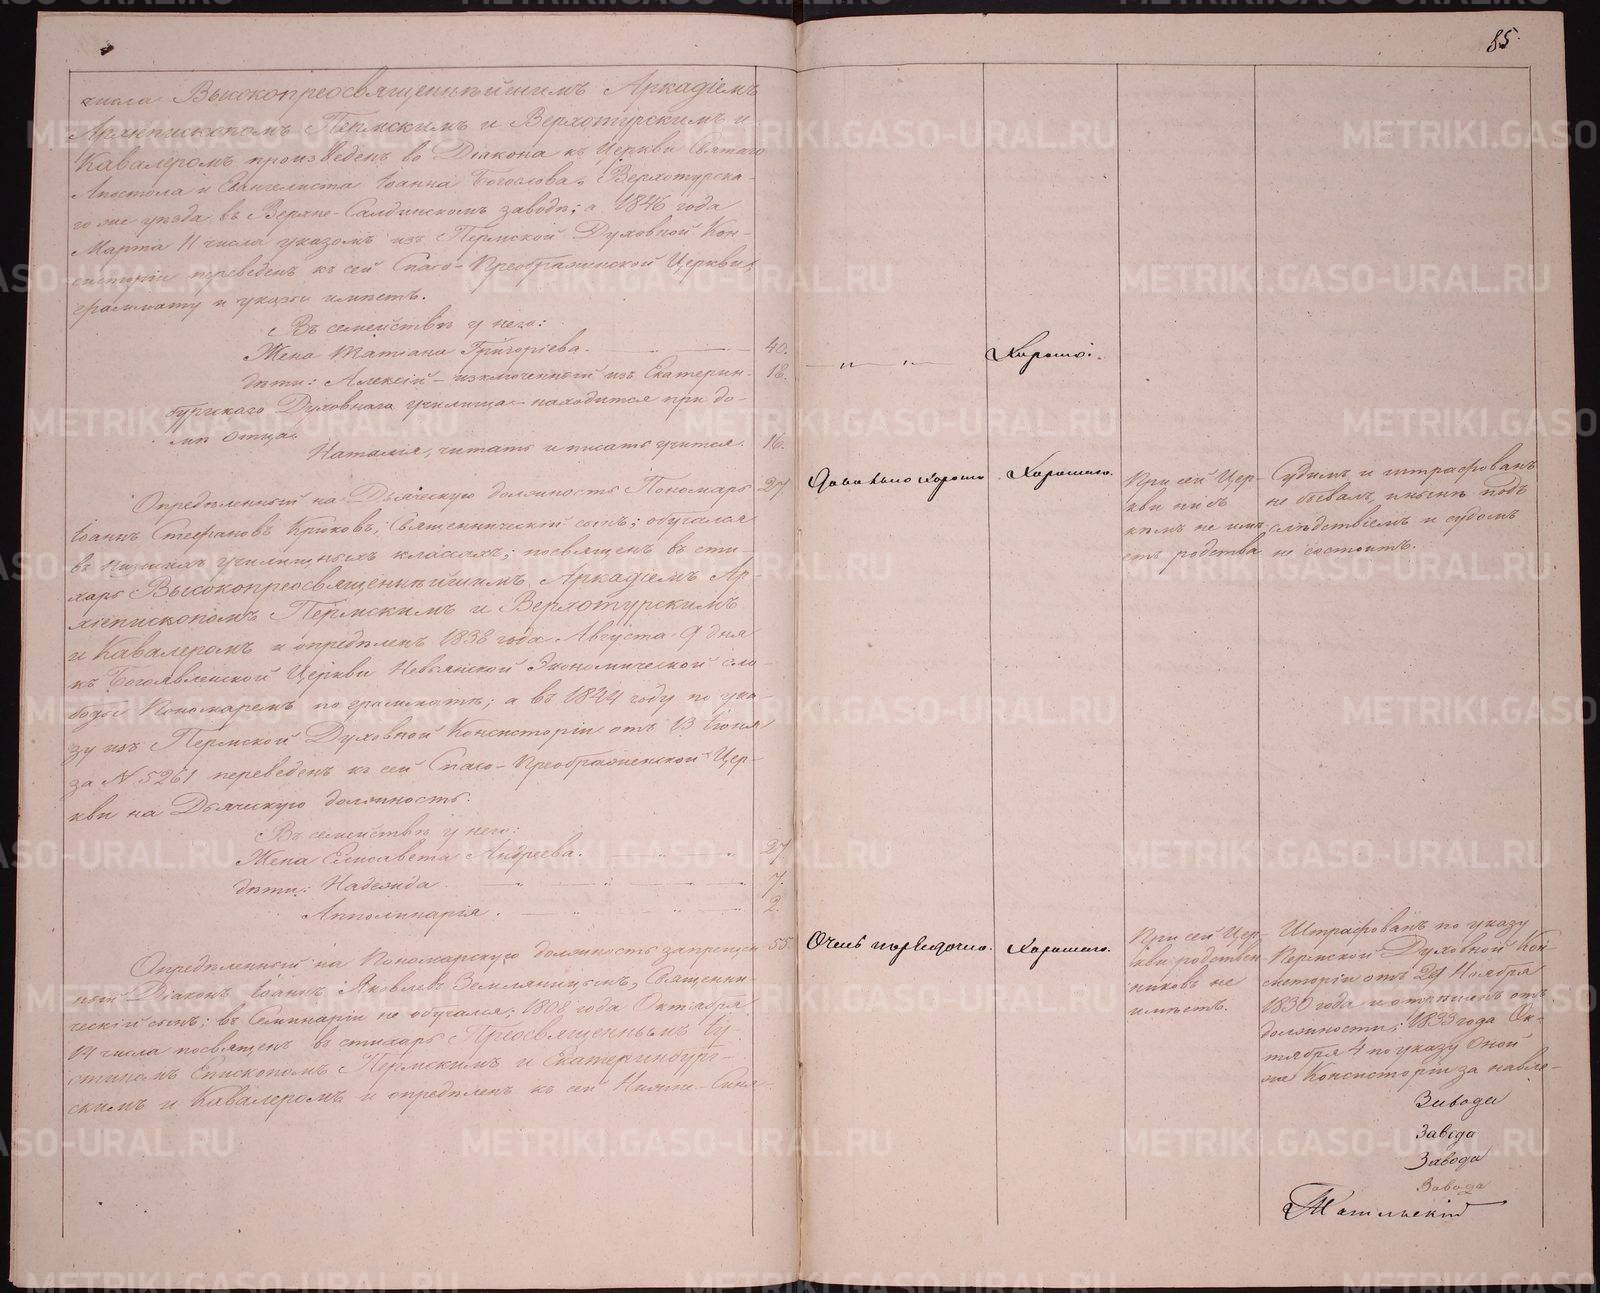 85.
числа Высокопреосвященнѣйшимъ Аркадіемъ
Архіепископомъ Пермскимъ и Верхотурскимъ и
Кавалеромъ произведенъ во Діакона къ Церкви Святаго
Апостола и Евангелиста Іоанна Богослова, Верхотурска-
го же уѣзда въ Верхне-Салдинскомъ заводѣ; а 1846 года
Марта 11 числа указомъ изъ Пермской Духовной Кон-
систоріи переведенъ къ сей Спасо-Преображенской Церкви,
грammату и указы имѣетъ.
Въ семействѣ у него:
Жена Татіана Григоріева. 40.
дѣти: Алексій – изключенный изъ Екатерин- 18.
бургскаго Духовнаго училища – находится при до-
мѣ отца.
Наталія, читать и писать учится. 16.
Хорошо.
Опредѣленный на Дьяческую должность Пономарь 27
Іоаннъ Стефановъ Крюковъ, Священническій сынъ; обучался
въ низшихъ училищныхъ классахъ; посвященъ въ сти-
харь Высокопреосвященнѣйшимъ Аркадіемъ Ар-
хіепископомъ Пермскимъ и Верхотурскимъ
и Кавалеромъ и опредѣленъ 1838 года Августа 9 дня
къ Богоявленской Церкви Невьянской Экономической сло-
боды Пономаремъ по грамматѣ; а въ 1844 году по ука-
зу изъ Пермской Духовной Консисторіи отъ 13 Іюня
за № 5261 переведенъ къ сей Спасо-Преображенской Цер-
кви на Дьяческую должность.
Въ семействѣ у него:
Жена Елисавета Андреева. 27
дѣти: Надежда. 7.
Апполинарія. 2.
Довольно хорошо.
Хорошаго.
При сей Цер-
кви ни съ
кѣмъ не имѣ-
етъ родства
Судимъ и штрафованъ
не бывалъ, и нынѣ подъ
слѣдствіемъ и судомъ
не состоитъ.
Опредѣленный на Пономарскую должность запрещен- 55.
ный Діаконъ Іоаннъ Яковлевъ Земляницынъ, Священни-
ческій сынъ; въ Семинаріи не обучался; 1808 года Октября
14 числа посвященъ въ стихарь Преосвященнымъ Іу-
стиномъ Епископомъ Пермскимъ и Екатеринбург-
скимъ и Кавалеромъ и опредѣленъ къ сей Нижне-Синя-
Очень порядочно.
Хорошаго.
При сей Цер-
кви родствен-
никовъ не
имѣетъ.
Штрафованъ по указу
Пермской Духовной Кон-
систоріи отъ 24 Ноября
1830 года и отрѣшенъ отъ
должности; 1833 года Ок-
тября 4 по указу оной
же Консисторіи за навле-
Завода
Завода
Завода
Завода
Тагильскій